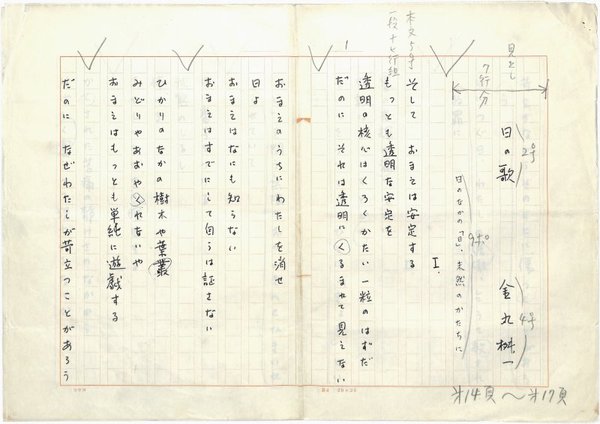 見出し
7行分
日の歌
2号
金丸桝一
4号
日のなかの「日」、未然のかたちに
9ポ
Ⅰ.
そして おまえは安定する
もっとも透明な安定を
透明の核心はくろくかたい一粒のはずだ
だのに それは透明にくるまれて見えない
おまえのうちにわたしを消せ
日よ
おまえはなにも知らない
おまえはすでにして自らは証さない
ひかりのなかの樹木や葉叢
みどりやあおやくれないや
おまえはもっとも単純に遊戯する
だのに なぜわたしが苛立つことがあろう
1
オ14頁〜オ17頁